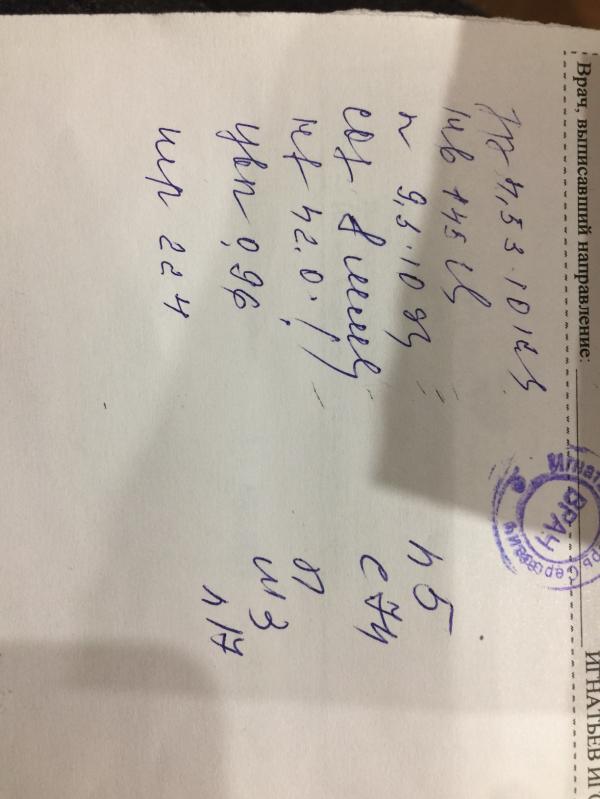 Врач, выписавший направление:
ИГНАТЬЕВ ИГ
Эр 4,53·10 12/л
Нв 145 г/л
л 9,3·10 9/л
соэ 8 мм/ч
Нt 42.0%
цвп 0,96
тр 224
п 5
с 74
м 3
л 17
Игнать
ВРАЧ
рь Сергеевич